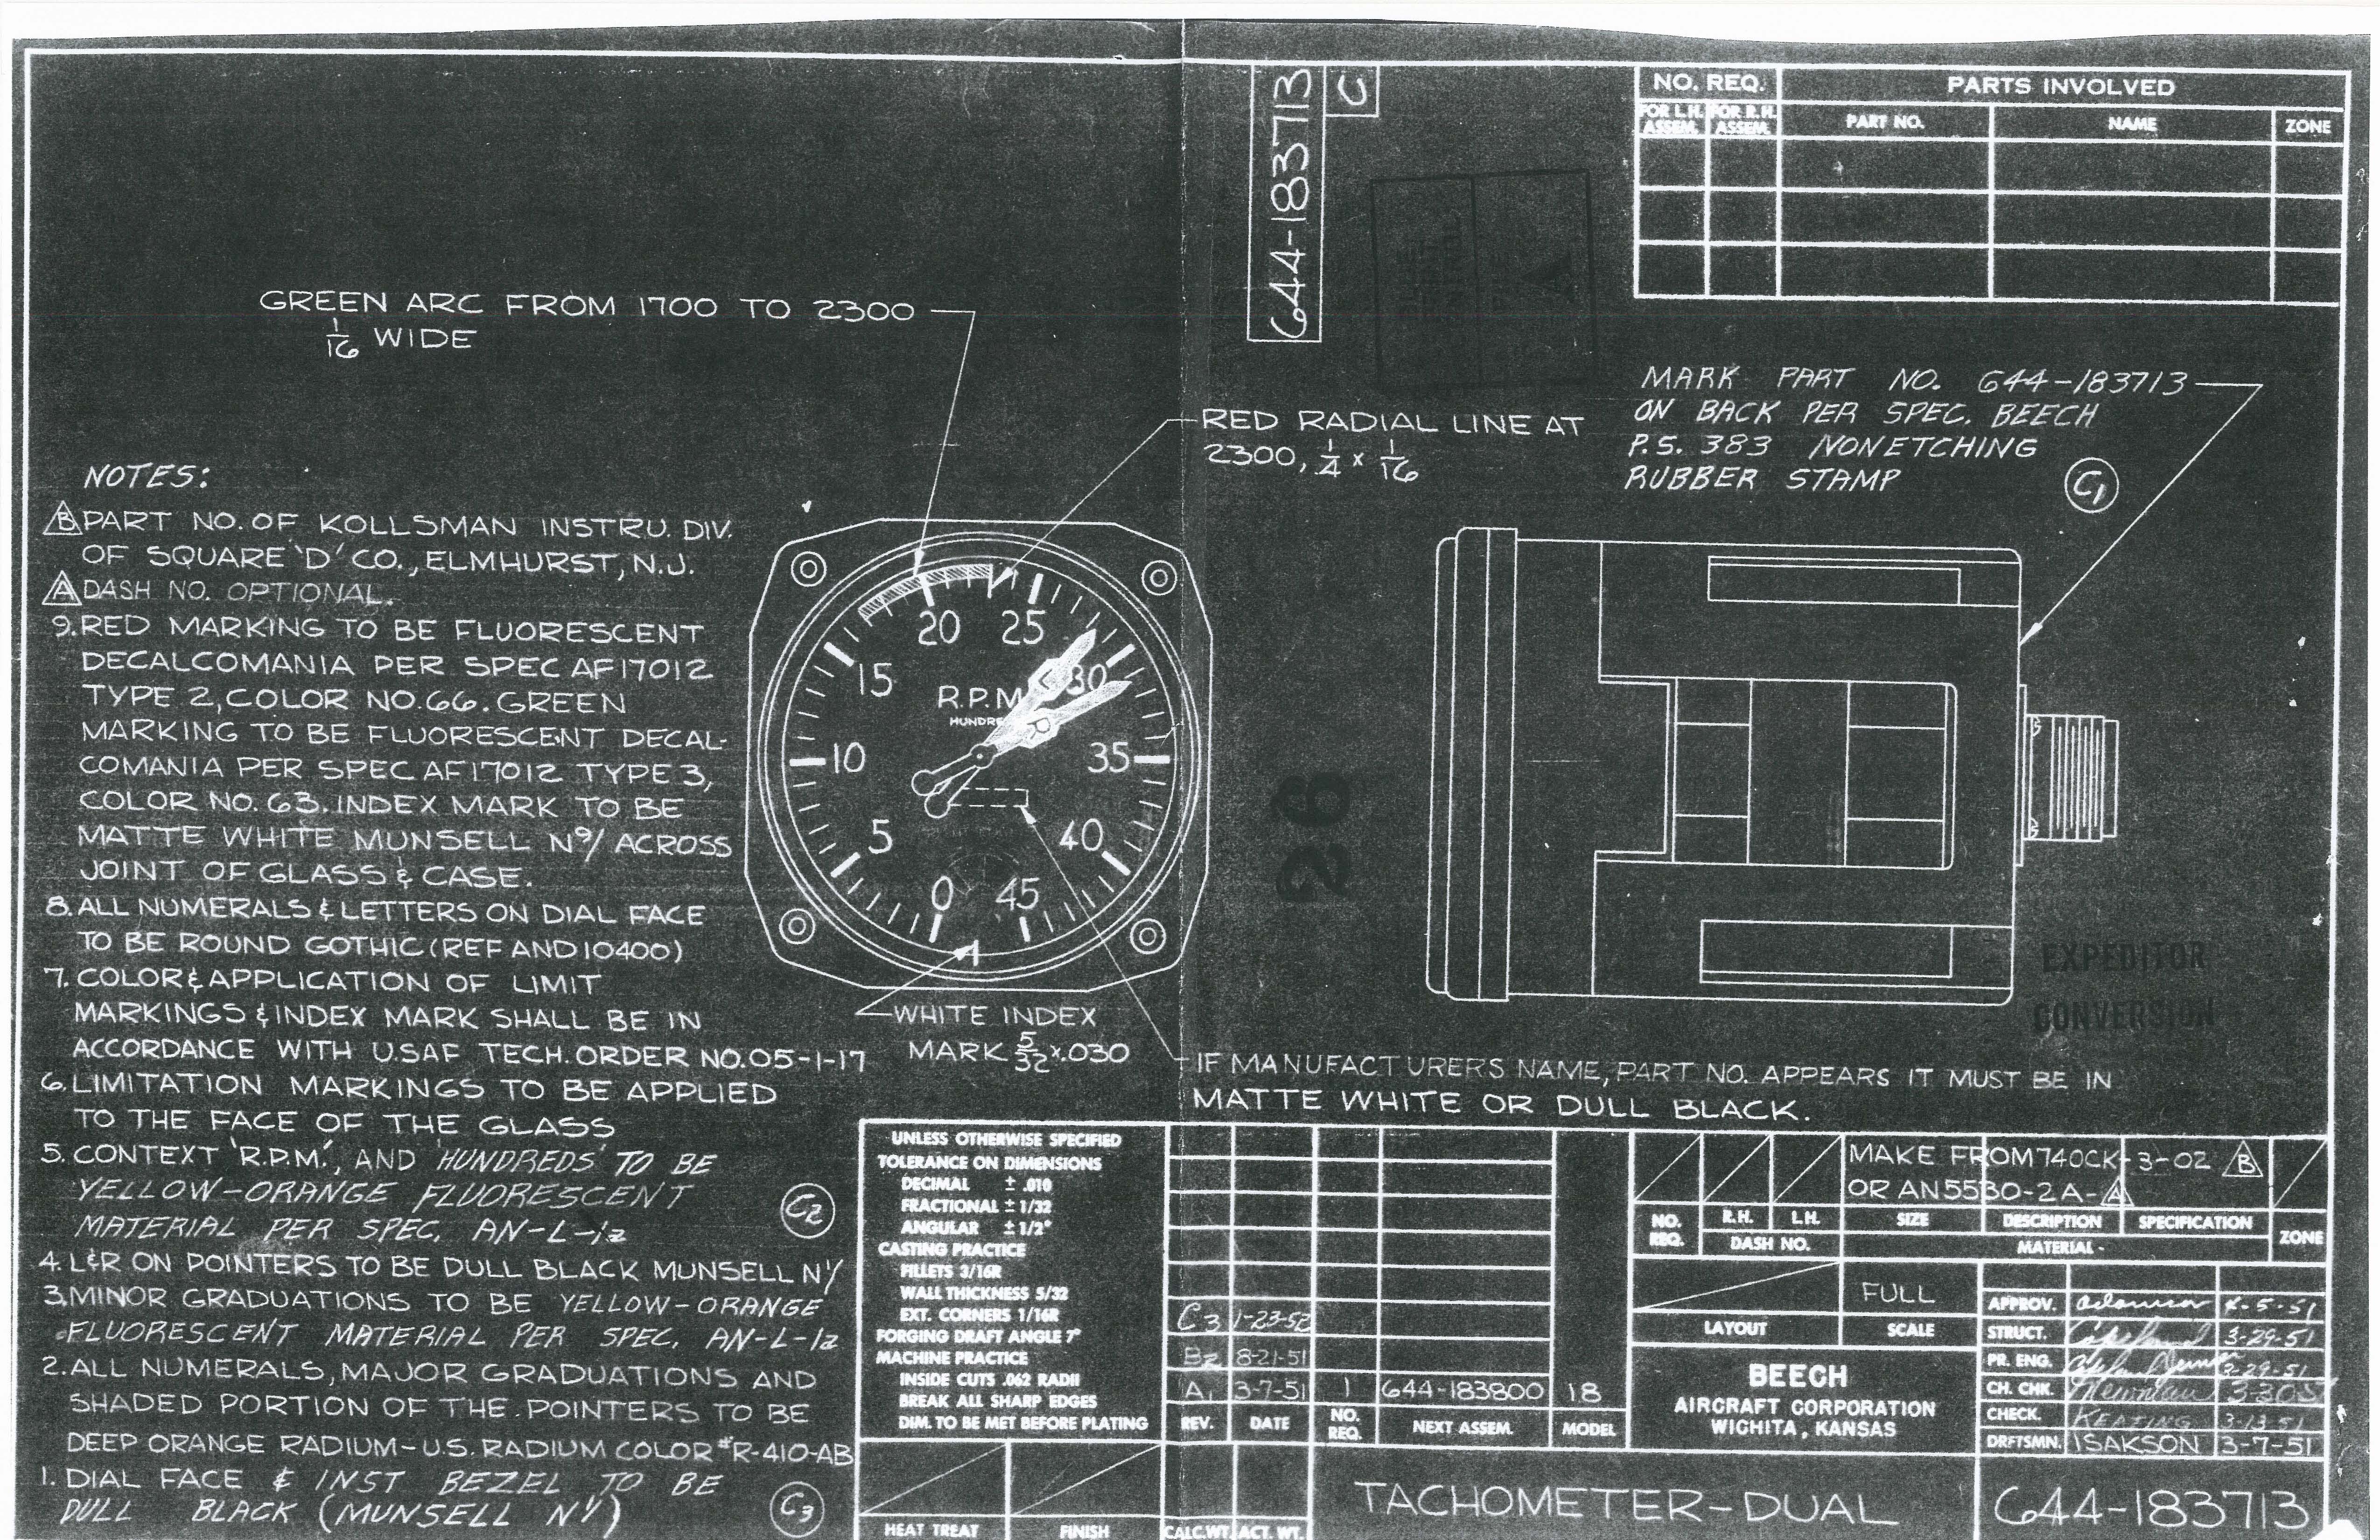 644-183713
C
NO. REQ.
PARTS INVOLVED
FOR L.H. ASSEM.
FOR R.H. ASSEM.
PART NO.
NAME
ZONE
GREEN ARC FROM 1700 TO 2300
1/16 WIDE
RED RADIAL LINE AT
2300, 1/4 x 1/16
MARK PART NO. 644-183713
ON BACK PER SPEC. BEECH
P.S. 383 NONETCHING
RUBBER STAMP
C1
NOTES:
B PART NO. OF KOLLSMAN INSTRU. DIV.
OF SQUARE 'D' CO., ELMHURST, N.J.
A DASH NO. OPTIONAL.
9. RED MARKING TO BE FLUORESCENT
DECALCOMANIA PER SPEC AF17012
TYPE 2, COLOR NO. 66. GREEN
MARKING TO BE FLUORESCENT DECAL-
COMANIA PER SPEC AF17012 TYPE 3,
COLOR NO. 63. INDEX MARK TO BE
MATTE WHITE MUNSELL N9/ ACROSS
JOINT OF GLASS & CASE.
8. ALL NUMERALS & LETTERS ON DIAL FACE
TO BE ROUND GOTHIC (REF AND10400)
7. COLOR & APPLICATION OF LIMIT
MARKINGS & INDEX MARK SHALL BE IN
ACCORDANCE WITH U.S.A.F TECH. ORDER NO. 05-1-17
6. LIMITATION MARKINGS TO BE APPLIED
TO THE FACE OF THE GLASS
5. CONTEXT 'R.P.M.', AND 'HUNDREDS' TO BE
YELLOW-ORANGE FLUORESCENT
MATERIAL PER SPEC. AN-L-1a
C2
4. L&R ON POINTERS TO BE DULL BLACK MUNSELL N1/
3. MINOR GRADUATIONS TO BE YELLOW-ORANGE
FLUORESCENT MATERIAL PER SPEC. AN-L-1a
2. ALL NUMERALS, MAJOR GRADUATIONS AND
SHADED PORTION OF THE POINTERS TO BE
DEEP ORANGE RADIUM-U.S. RADIUM COLOR #R-410-AB
1. DIAL FACE & INST BEZEL TO BE
DULL BLACK (MUNSELL N1/)
C3
20 25
15 30
R.P.M
HUNDRE
L
R
10 35
5 40
0 45
28
EXPEDITOR
CONVERSION
WHITE INDEX
MARK 5/32 x .030
IF MANUFACTURERS NAME, PART NO. APPEARS IT MUST BE IN
MATTE WHITE OR DULL BLACK.
UNLESS OTHERWISE SPECIFIED
TOLERANCE ON DIMENSIONS
DECIMAL ± .010
FRACTIONAL ± 1/32
ANGULAR ± 1/2°
CASTING PRACTICE
FILLETS 3/16R
WALL THICKNESS 5/32
EXT. CORNERS 1/16R
FORGING DRAFT ANGLE 7°
MACHINE PRACTICE
INSIDE CUTS .062 RADII
BREAK ALL SHARP EDGES
DIM. TO BE MET BEFORE PLATING
HEAT TREAT
FINISH
C3 1-23-52
B2 8-21-51
A1 3-7-51
REV. DATE
CALC.WT. ACT. WT.
1 644-183800 18
NO. REQ. NEXT ASSEM. MODEL
MAKE FROM 740CK-3-02 B
OR AN5530-2A- A
NO. REQ.
R.H. L.H.
DASH NO.
SIZE DESCRIPTION SPECIFICATION
MATERIAL -
ZONE
FULL
LAYOUT SCALE
BEECH
AIRCRAFT CORPORATION
WICHITA, KANSAS
APPROV. 4-5-51
STRUCT. 3-29-51
PR. ENG. 3-29-51
CH. CHK. Newman
CHECK. KEATING 3-13-51
DRFTSMN. ISAKSON 3-7-51
TACHOMETER-DUAL
644-183713